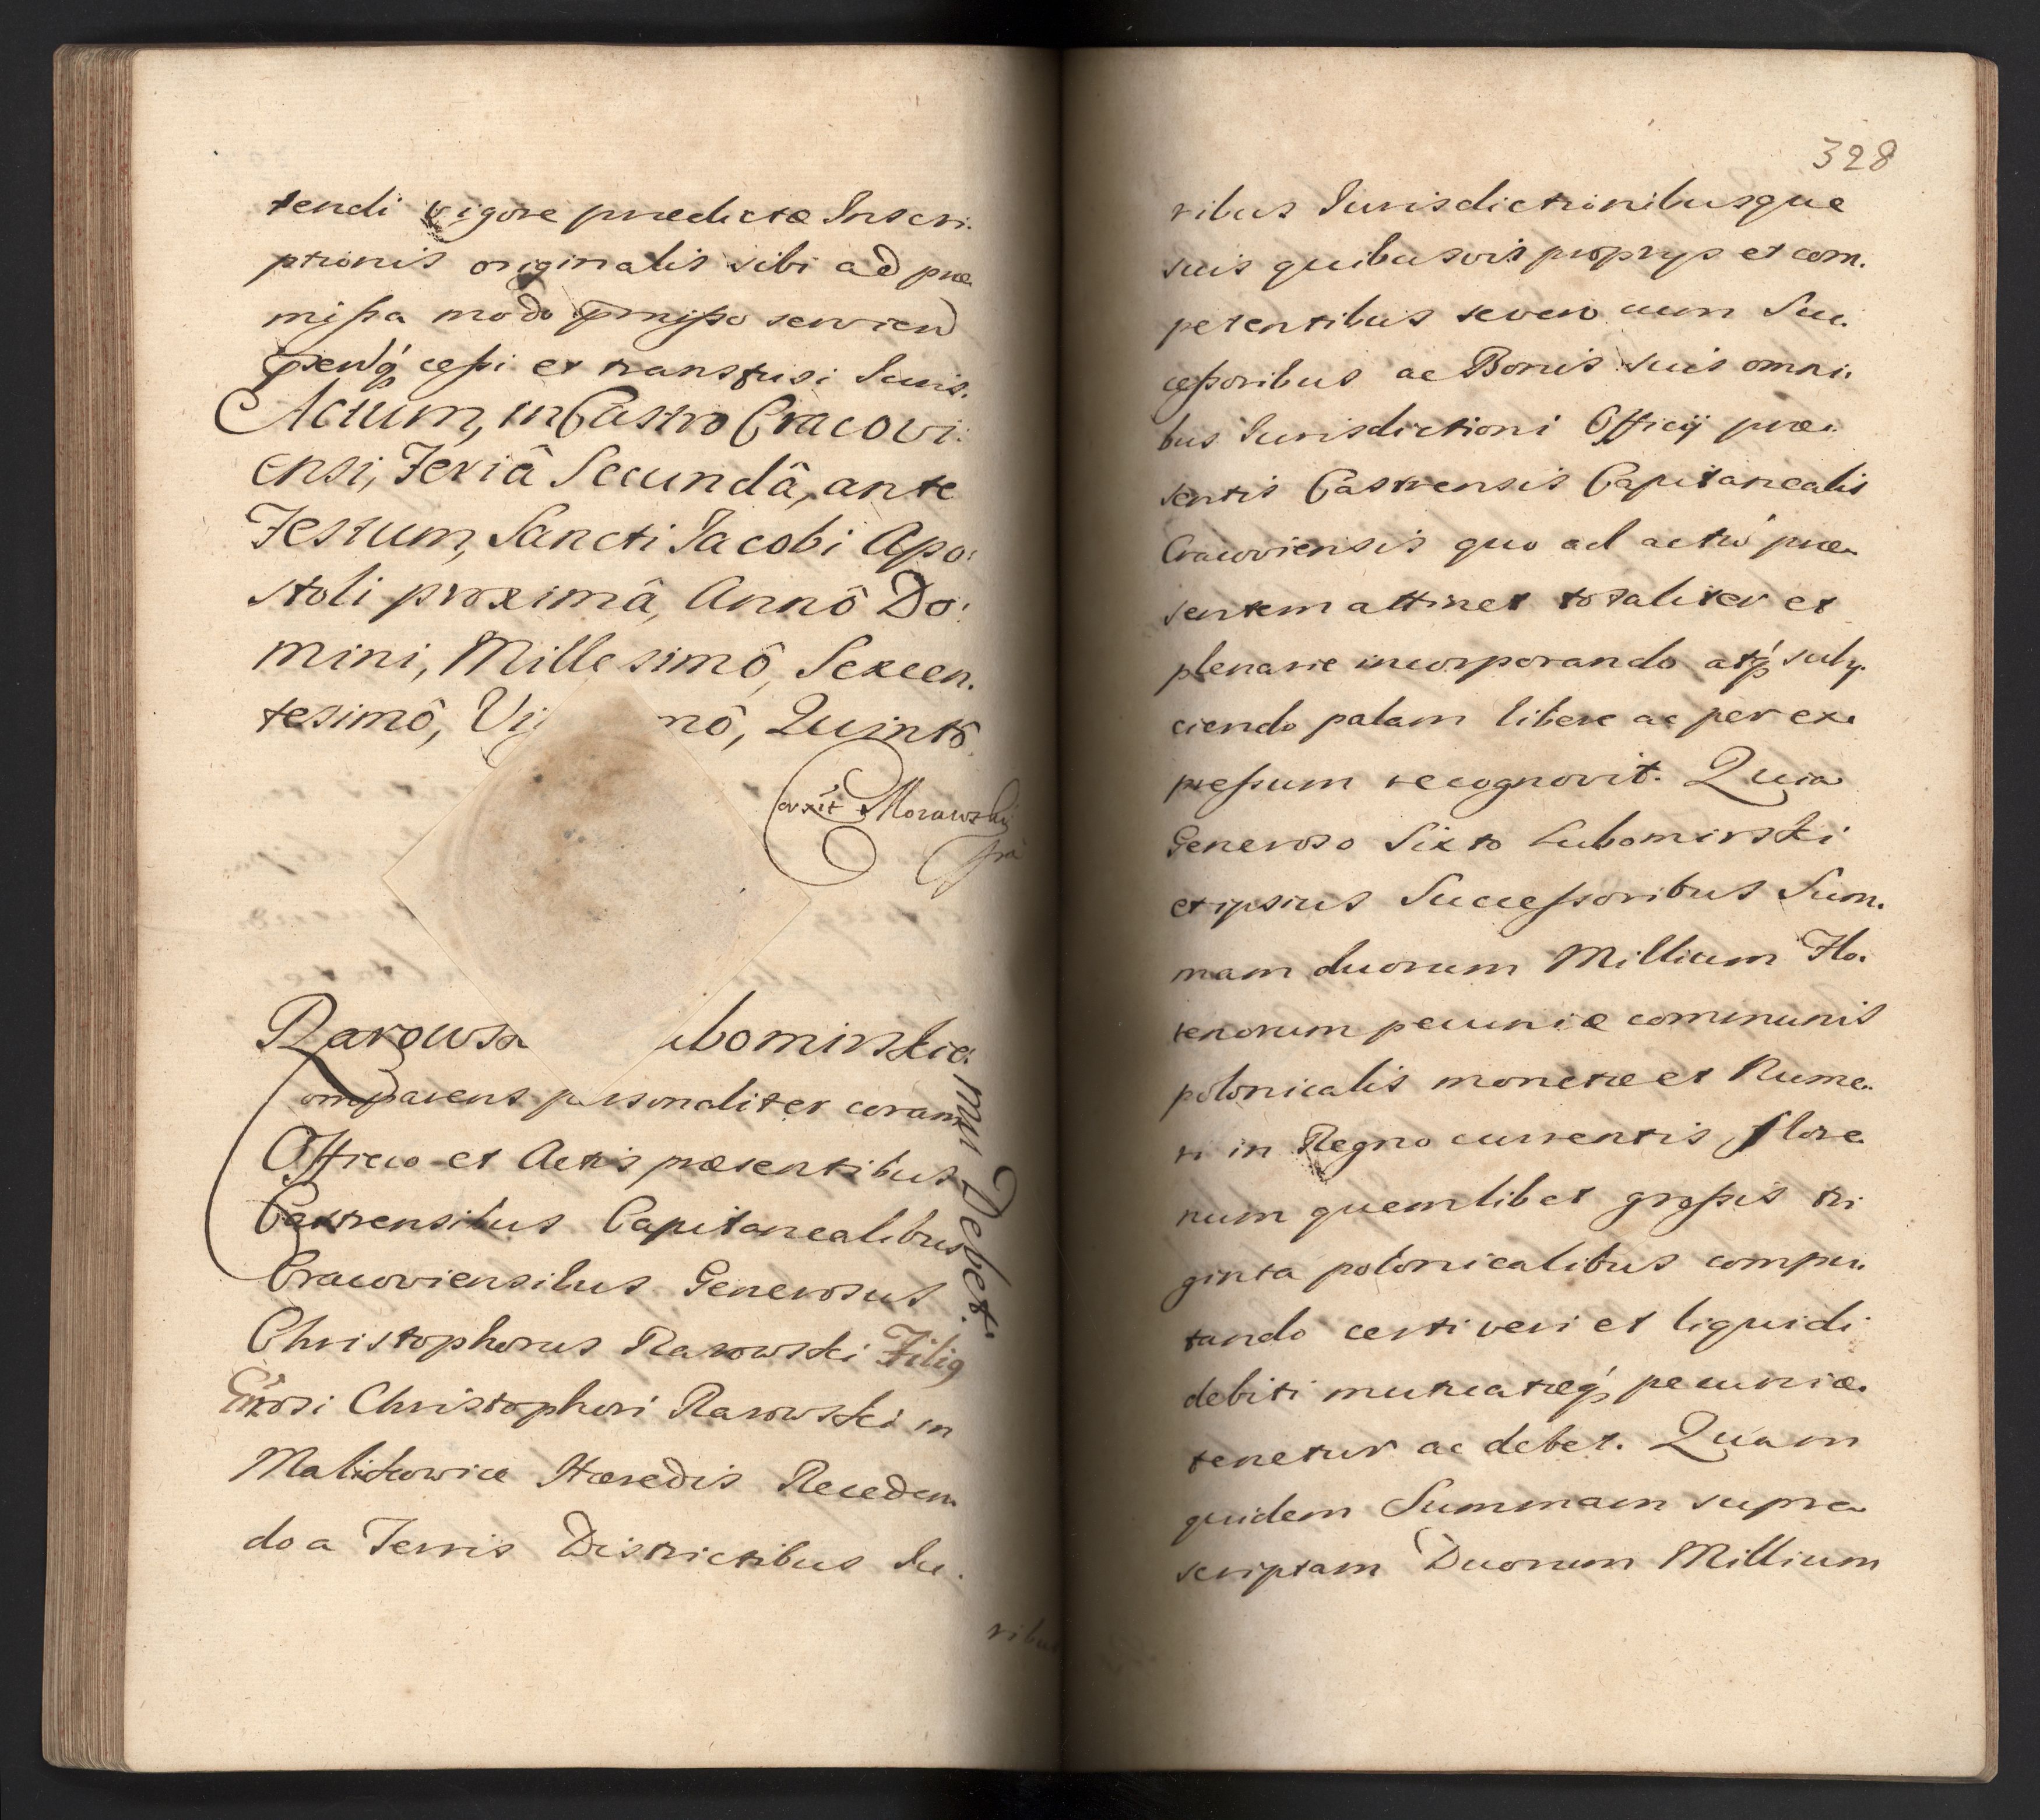 tendi vigore praedictae Inscri:
ptionis originalis sibi ad prae
mißa modo pmißo serviend
cessi et transfusi Iuris.
Actum, in Castro Cracovi:
ensi, Feriâ Secundâ, ante
Festum, Sancti Iacobi Apo:
stoli proximâ, Annô Do:
mini, Millesimô, Sexcen.
tesimô, Vi nô, Quintô
Morawski
Rarowsk ubomirskie:
mu Debet.
Comparens personaliter coram
Officio et Actis praesentibus
Castrensibus Capitanealibus
Cracoviensibus Generosus
Christophorus Rarowski Filiq
Gnrosi Christophori Rarowski in
Haeredis Receden
do a Terris Districtibus Iu.
ribus
328
ribus Iurisdictionibusque
suis quibusvis proprys et com.
petentibus seveno cum Suc.
ceßoribus ac Bonis suis omni:
bus Iurisdictioni Officij prae:
sentis Castrensis Capitanealis
Cracoviensis quo ad actu prae
sentem attinet totaliter et
plenarie incorporando atq suby.
ciendo palam libere ac per ex
preßum recognovit. Quia
Generoso Sixto Lubomirski
et ipsius Succeßoribus Sum.
mam duorum Millium Flo.
renorum pecuniae communis
polonicalis monetae et Nume.
ri in Regno currentis, flore
num quemlibet großis tri
ginta polonicalibus compu.
tando certi veri et liquidi
debiti mutuataeq pecuniae
tenetur ac debet. Quam
quidem Summam supra
scriptam Duorum Millium